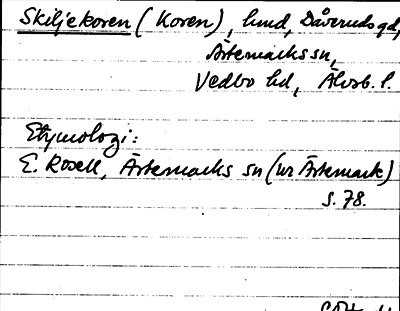 Skiljekoren (Koren), hmd, Dåveruds gd,
Ärtemarks sn,
Vedbo hd, Älvsb. l.
Etymologi:
E. Rosell, Ärtemarks sn (ur Ärtemark)
s. 78.